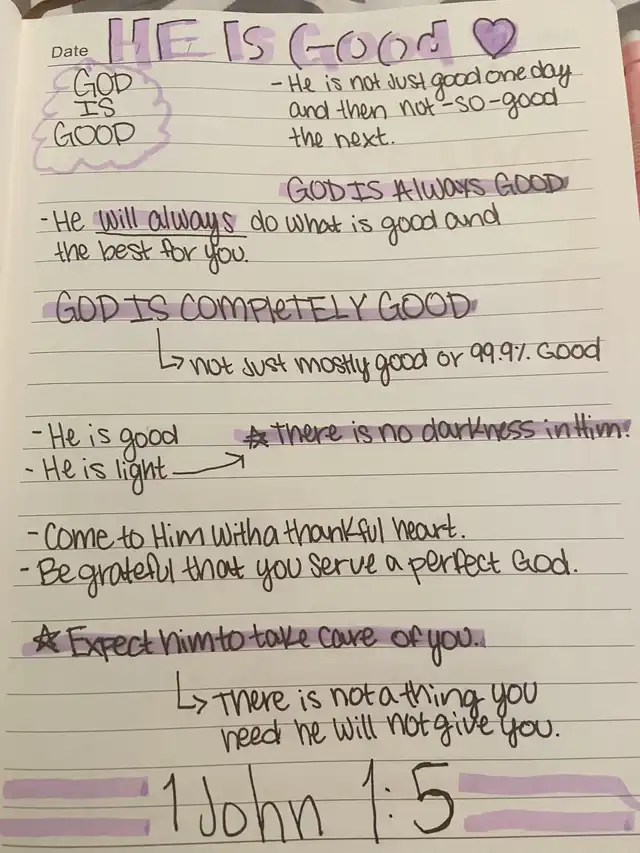 Date HE Is Good
GOD
IS
GOOD
- He is not just good one day
and then not-so-good
the next.
GOD IS ALWAYS GOOD
- He will always do what is good and
the best for you.
GOD IS COMPLETELY GOOD
not just mostly good or 99.9% Good
- He is good
- He is light
There is no darkness in Him!
- Come to Him with a thankful heart.
- Be grateful that you serve a perfect God.
Expect him to take care of you.
There is not a thing you
need he will not give you.
1 John 1:5